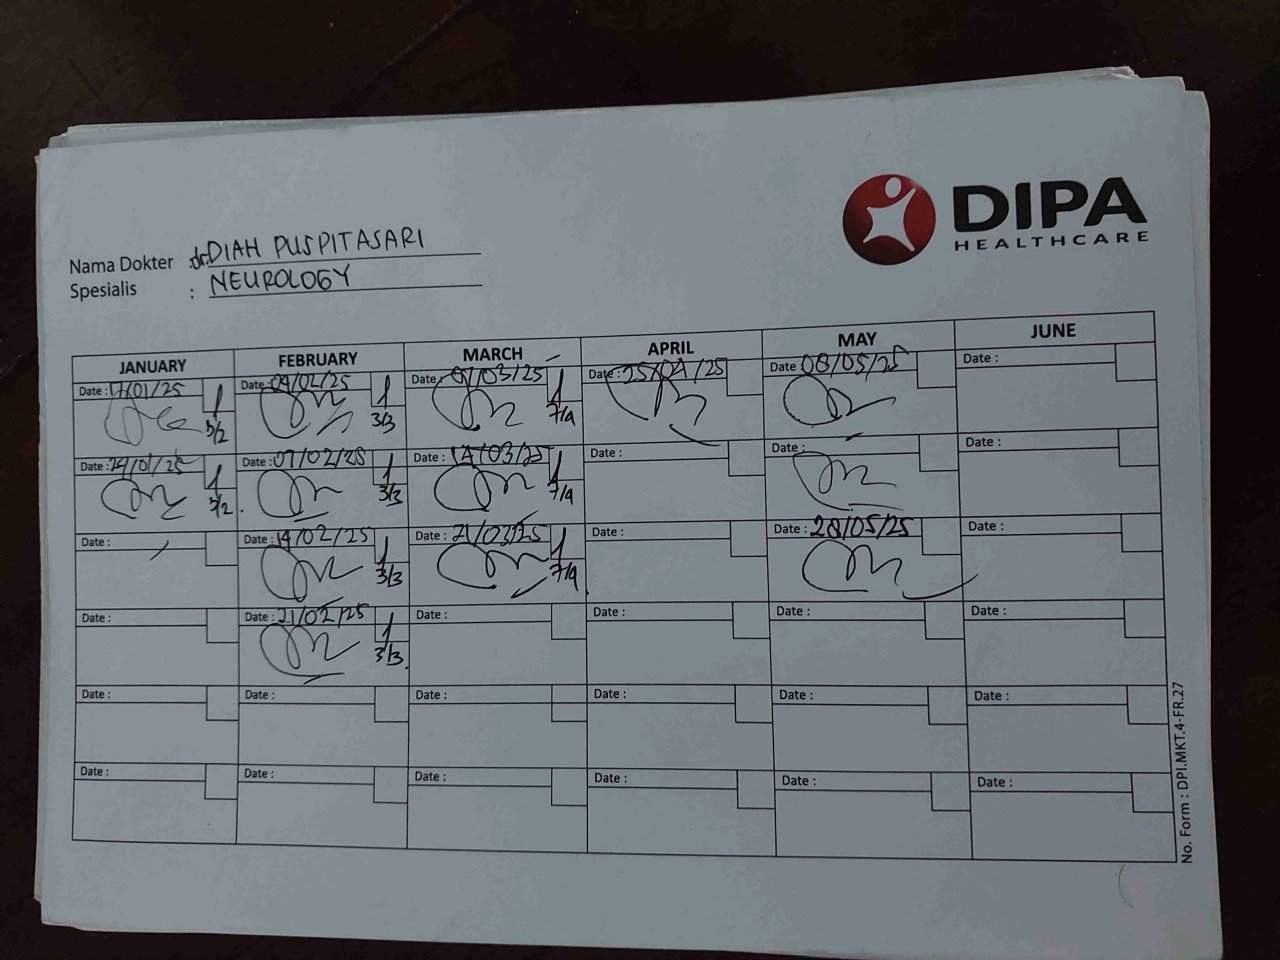 DIPA
HEALTHCARE
Nama Dokter : dr. DIAH PUSPITASARI
Spesialis : NEUROLOGY
JANUARY FEBRUARY MARCH APRIL MAY JUNE
Date : 17/01/25 Date : 04/02/25 Date : 07/03/25 Date : 25/04/25 Date 08/05/25 Date :
3/2 3/3 7/4
Date : 24/01/25 Date : 07/02/25 Date : 14/03/25 Date : Date : Date :
3/2 3/3 7/4
Date : Date : 14/02/25 Date : 21/03/25 Date : Date : 28/05/25 Date :
3/3 7/4
Date : Date : 21/02/25 Date : Date : Date : Date :
3/3
Date : Date : Date : Date : Date : Date :
Date : Date : Date : Date : Date : Date :
No. Form : DPI.MKT.4-FR.27